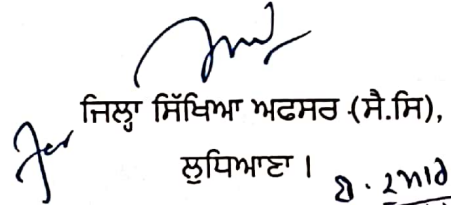 ਜਿਲ੍ਹਾ ਸਿੱਖਿਆ ਅਫਸਰ (ਸੈ.ਸਿ),
ਲੁਧਿਆਣਾ ।